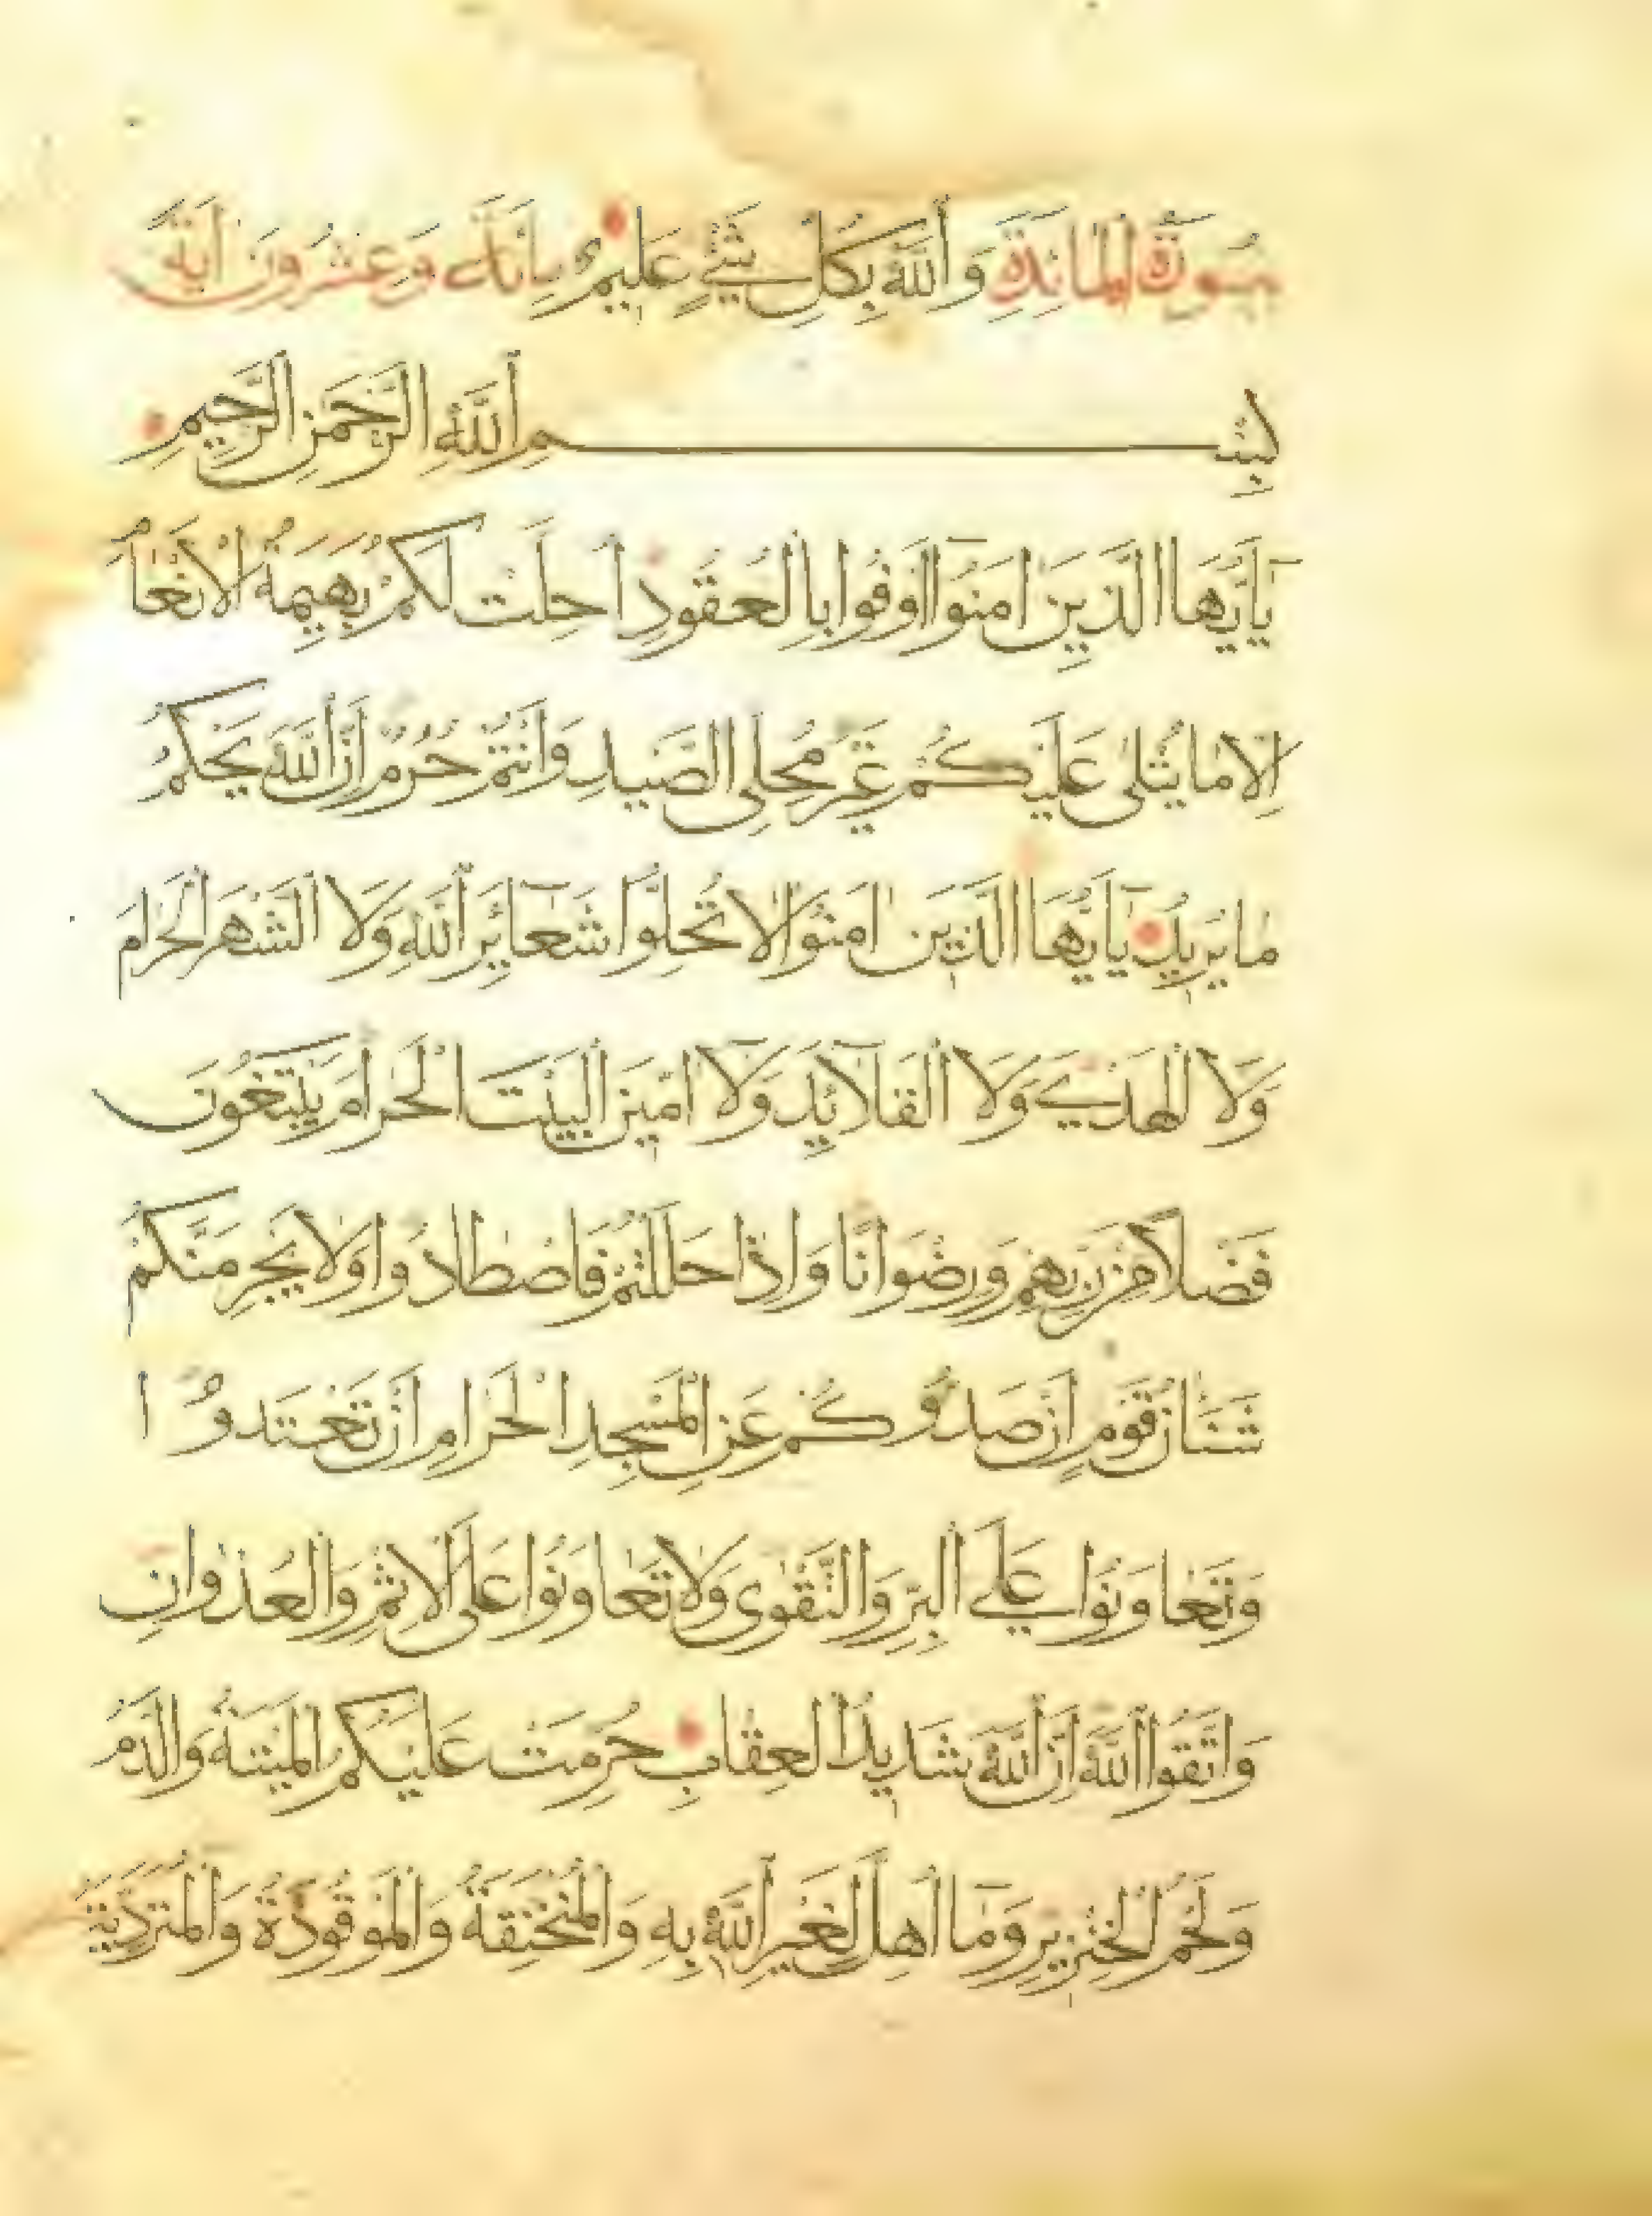 سُورَةُ الْمَائِدَةِ وَاللَّهُ بِكُلِّ شَيْءٍ عَلِيمٌ مِائَة وَعِشْرُونَ آيَةً
بِسْمِ اللَّهِ الرَّحْمَنِ الرَّحِيمِ
يَا أَيُّهَا الَّذِينَ آمَنُوا أَوْفُوا بِالْعُقُودِ أُحِلَّتْ لَكُمْ بَهِيمَةُ الْأَنْعَامِ
إِلَّا مَا يُتْلَى عَلَيْكُمْ غَيْرَ مُحِلِّي الصَّيْدِ وَأَنْتُمْ حُرُمٌ إِنَّ اللَّهَ يَحْكُمُ
مَا يُرِيدُ يَا أَيُّهَا الَّذِينَ آمَنُوا لَا تُحِلُّوا شَعَائِرَ اللَّهِ وَلَا الشَّهْرَ الْحَرَامَ
وَلَا الْهَدْيَ وَلَا الْقَلَائِدَ وَلَا آمِّينَ الْبَيْتَ الْحَرَامَ يَبْتَغُونَ
فَضْلًا مِنْ رَبِّهِمْ وَرِضْوَانًا وَإِذَا حَلَلْتُمْ فَاصْطَادُوا وَلَا يَجْرِمَنَّكُمْ
شَنَآنُ قَوْمٍ أَنْ صَدُّوكُمْ عَنِ الْمَسْجِدِ الْحَرَامِ أَنْ تَعْتَدُوا
وَتَعَاوَنُوا عَلَى الْبِرِّ وَالتَّقْوَى وَلَا تَعَاوَنُوا عَلَى الْإِثْمِ وَالْعُدْوَانِ
وَاتَّقُوا اللَّهَ إِنَّ اللَّهَ شَدِيدُ الْعِقَابِ حُرِّمَتْ عَلَيْكُمُ الْمَيْتَةُ وَالدَّمُ
وَلَحْمُ الْخِنْزِيرِ وَمَا أُهِلَّ لِغَيْرِ اللَّهِ بِهِ وَالْمُنْخَنِقَةُ وَالْمَوْقُوذَةُ وَالْمُتَرَدِّيَةُ